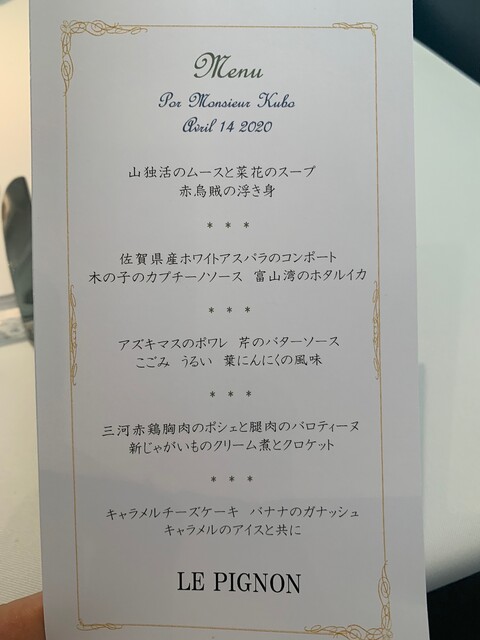 Menu
Por Monsieur Kubo
Avril 14 2020
山独活のムースと菜花のスープ
赤烏賊の浮き身
* * *
佐賀県産ホワイトアスパラのコンポート
木の子のカプチーノソース 富山湾のホタルイカ
* * *
アズキマスのポワレ 芹のバターソース
こごみ うるい 葉にんにくの風味
* * *
三河赤鶏胸肉のポシェと腿肉のバロティーヌ
新じゃがいものクリーム煮とクロケット
* * *
キャラメルチーズケーキ バナナのガナッシュ
キャラメルのアイスと共に
LE PIGNON